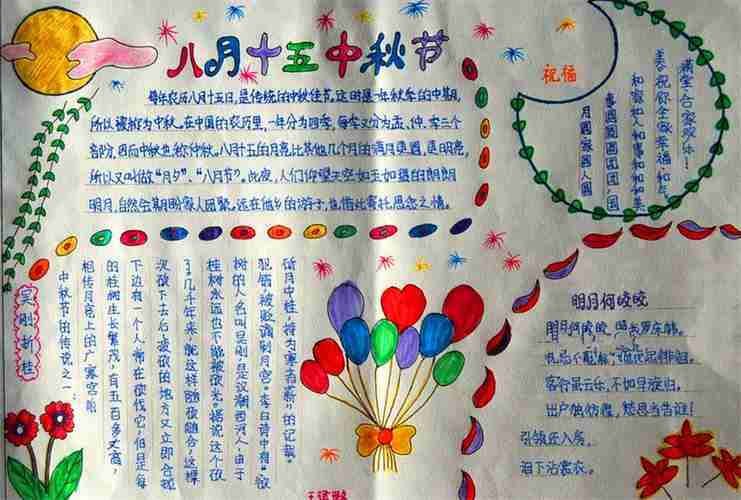 八月十五中秋节
每年农历八月十五日，是传统的中秋佳节。这时是一年秋季的中期，
所以被称为中秋。在中国的农历里，一年分为四季，每季又分为孟、仲、季三个
部分，因而中秋也称仲秋。八月十五的月亮比其他几个月的满月更圆，更明亮，
所以又叫做“月夕”、“八月节”。此夜，人们仰望天空如玉如盘的朗朗
明月，自然会期盼家人团聚。远在他乡的游子，也借此寄托思念之情。
祝福
满堂合家欢乐！
美祝你全家幸福和气，
和家和人和事和和和美
事圆圆圆团圆，国
月圆家圆人圆
吴刚折桂
中秋节的传说之一：
相传月亮上的广寒宫前
的桂树生长繁茂，有五百多丈高，
下边有一个人常在砍伐它，但是每
次砍下去后，被砍的地方又立即合拢
了。几千年来，就这样随砍随合，这样
桂树永远也不能被砍光。据说这个砍
树的人名叫吴刚，是汉朝西河人，由于
犯错被贬谪到月宫。李白诗中有“欲
斫月中桂，持为寒者薪”的记载。
明月何皎皎
明月何皎皎，照我罗床帏。
忧愁不能寐，揽衣起徘徊。
客行虽云乐，不如早旋归。
出户独彷徨，愁思当告谁！
引领还入房，
泪下沾裳衣。